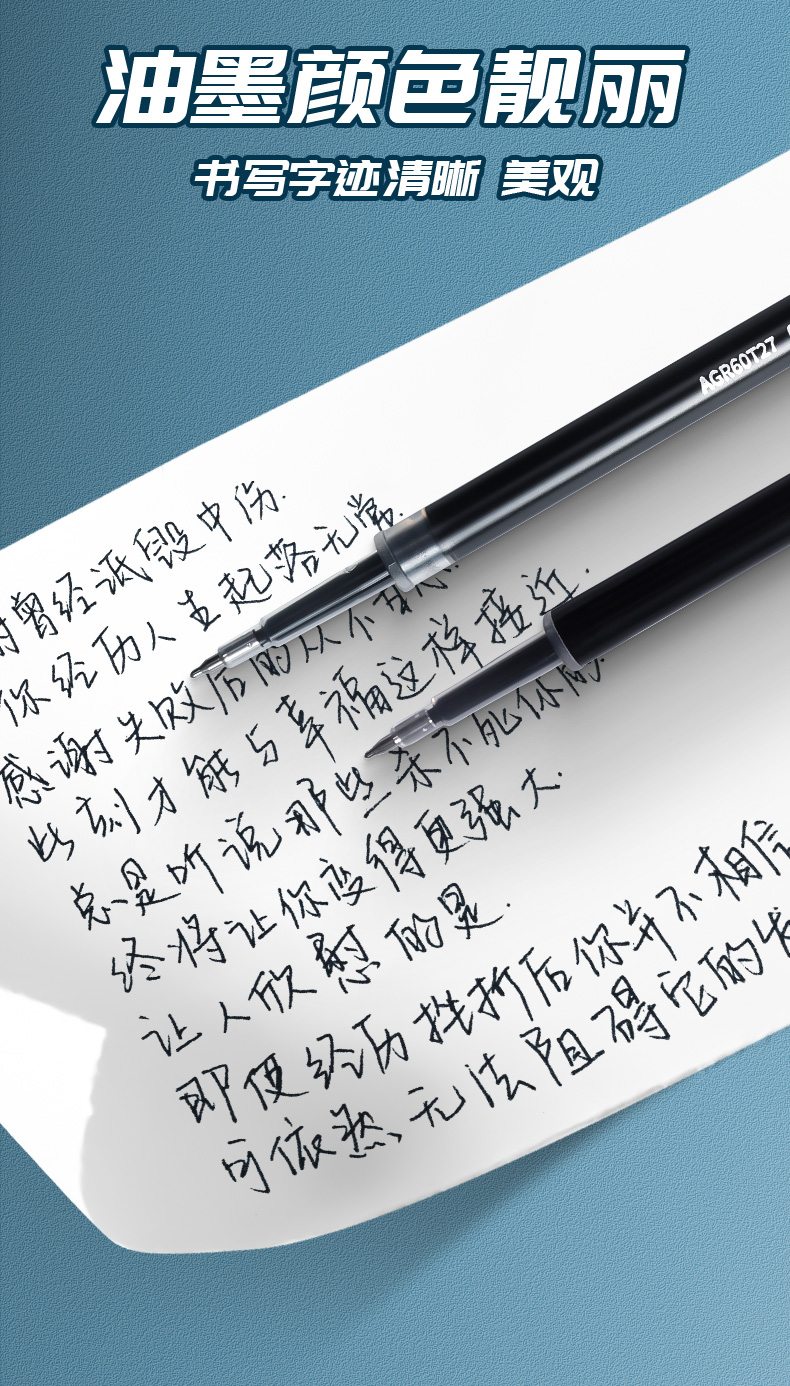 油墨颜色靓丽
书写字迹清晰 美观
AGR60T27
曾经诋毁中伤.
你经历人生起落无常.
感谢失败后的从不
此刻才能与幸福这样接近.
总是听说那些杀不死你的
终将让你变得更强大.
让人欣慰的是.
即便经历挫折后你并不相信
可依然无法阻碍它的